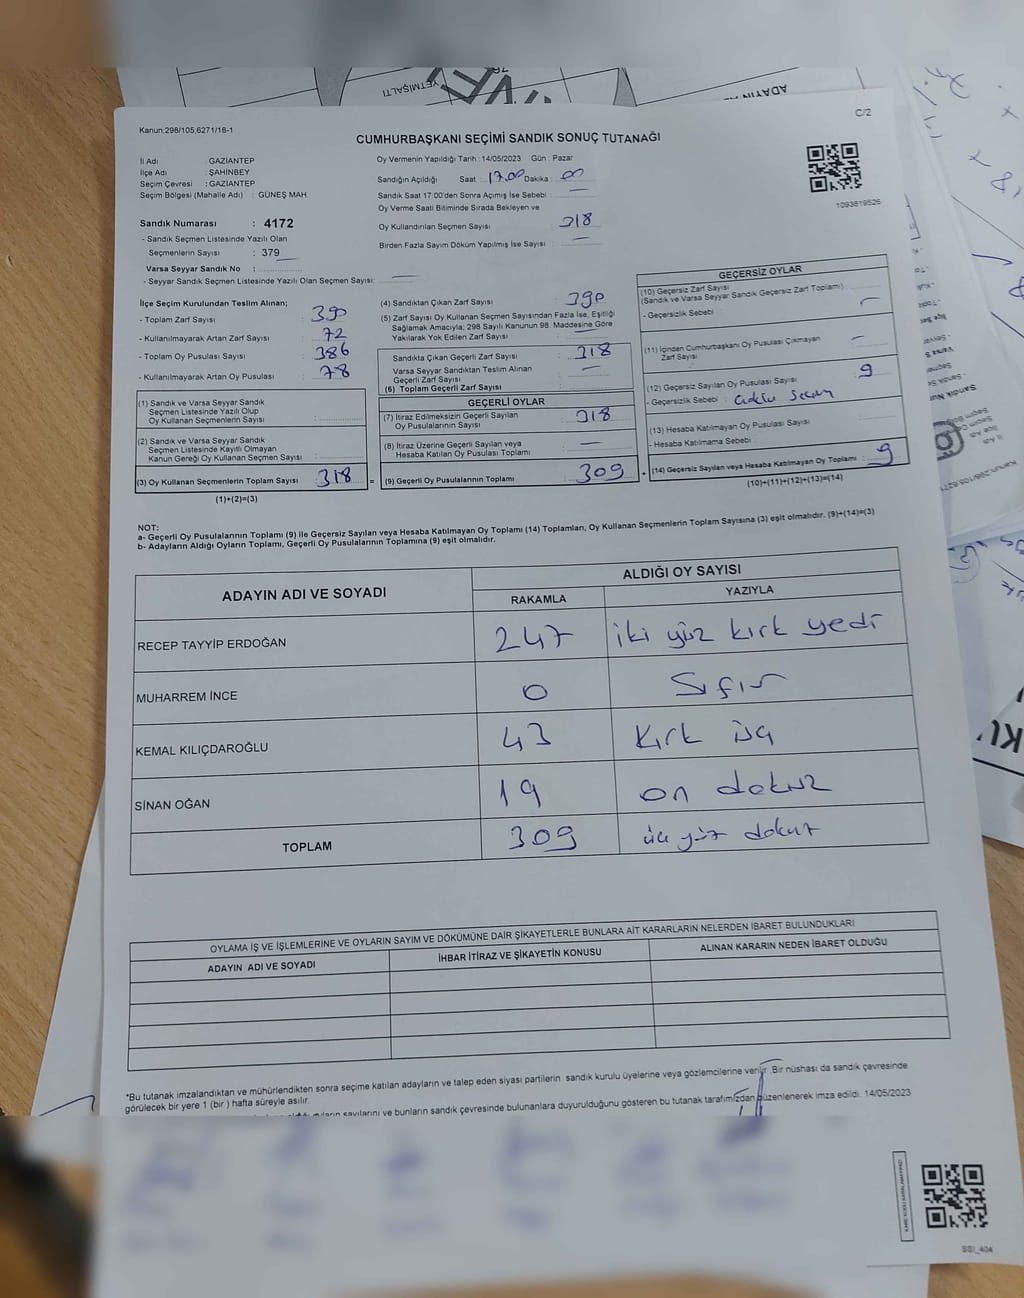 C/2
Kanun:298/105,6271/16-1
CUMHURBAŞKANI SEÇİMİ SANDIK SONUÇ TUTANAĞI
1093819526
İl Adı : GAZİANTEP
İlçe Adı : ŞAHİNBEY
Seçim Çevresi : GAZİANTEP
Seçim Bölgesi (Mahalle Adı) : GÜNEŞ MAH.
Oy Vermenin Yapıldığı Tarih : 14/05/2023 Gün : Pazar
Sandığın Açıldığı Saat : 17.00 Dakika : 00
Sandık Saat 17:00'den Sonra Açımış İse Sebebi : —
Oy Verme Saati Bitiminde Sırada Bekleyen ve
Oy Kullandırılan Seçmen Sayısı : 318
Birden Fazla Sayım Döküm Yapılmış İse Sayısı : —
Sandık Numarası : 4172
- Sandık Seçmen Listesinde Yazılı Olan
Seçmenlerin Sayısı : 379
Varsa Seyyar Sandık No :
- Seyyar Sandık Seçmen Listesinde Yazılı Olan Seçmen Sayısı: —
İlçe Seçim Kurulundan Teslim Alınan;
- Toplam Zarf Sayısı : 390
- Kullanılmayarak Artan Zarf Sayısı : 72
- Toplam Oy Pusulası Sayısı : 386
- Kullanılmayarak Artan Oy Pusulası : 78
(1) Sandık ve Varsa Seyyar Sandık
Seçmen Listesinde Yazılı Olup
Oy Kullanan Seçmenlerin Sayısı :
(2) Sandık ve Varsa Seyyar Sandık
Seçmen Listesinde Kayıtlı Olmayan
Kanun Gereği Oy Kullanan Seçmen Sayısı :
(3) Oy Kullanan Seçmenlerin Toplam Sayısı : 318 =
(1)+(2)=(3)
(4) Sandıktan Çıkan Zarf Sayısı : 390
(5) Zarf Sayısı Oy Kullanan Seçmen Sayısından Fazla İse, Eşitliği
Sağlamak Amacıyla; 298 Sayılı Kanunun 98. Maddesine Göre
Yakılarak Yok Edilen Zarf Sayısı : —
Sandıkta Çıkan Geçerli Zarf Sayısı : 318
Varsa Seyyar Sandıktan Teslim Alınan
Geçerli Zarf Sayısı : —
(6) Toplam Geçerli Zarf Sayısı :
GEÇERLİ OYLAR
(7) İtiraz Edilmeksizin Geçerli Sayılan
Oy Pusulalarının Sayısı : 318
(8) İtiraz Üzerine Geçerli Sayılan veya
Hesaba Katılan Oy Pusulası Toplamı : —
(9) Geçerli Oy Pusulalarının Toplamı : 309 +
GEÇERSİZ OYLAR
(10) Geçersiz Zarf Sayısı
(Sandık ve Varsa Seyyar Sandık Geçersiz Zarf Toplamı) :
- Geçersizlik Sebebi :
(11) İçinden Cumhurbaşkanı Oy Pusulası Çıkmayan
Zarf Sayısı : —
(12) Geçersiz Sayılan Oy Pusulası Sayısı : 9
- Geçersizlik Sebebi :
(13) Hesaba Katılmayan Oy Pusulası Sayısı :
- Hesaba Katılmama Sebebi :
(14) Geçersiz Sayılan veya Hesaba Katılmayan Oy Toplamı : 9
(10)+(11)+(12)+(13)=(14)
NOT:
a- Geçerli Oy Pusulalarının Toplamı (9) ile Geçersiz Sayılan veya Hesaba Katılmayan Oy Toplamı (14) Toplamları, Oy Kullanan Seçmenlerin Toplam Sayısına (3) eşit olmalıdır. (9)+(14)=(3)
b- Adayların Aldığı Oyların Toplamı, Geçerli Oy Pusulalarının Toplamına (9) eşit olmalıdır.
ADAYIN ADI VE SOYADI ALDIĞI OY SAYISI
RAKAMLA YAZIYLA
RECEP TAYYİP ERDOĞAN 247 iki yüz kırk yedi
MUHARREM İNCE 0 Sıfır
KEMAL KILIÇDAROĞLU 43 Kırk üç
SİNAN OĞAN 19 on dokuz
TOPLAM 309 üç yüz dokuz
OYLAMA İŞ VE İŞLEMLERİNE VE OYLARIN SAYIM VE DÖKÜMÜNE DAİR ŞİKAYETLERLE BUNLARA AİT KARARLARIN NELERDEN İBARET BULUNDUKLARI
ADAYIN ADI VE SOYADI İHBAR İTİRAZ VE ŞİKAYETİN KONUSU ALINAN KARARIN NEDEN İBARET OLDUĞU
*Bu tutanak imzalandıktan ve mühürlendikten sonra seçime katılan adayların ve talep eden siyasi partilerin sandık kurulu üyelerine veya gözlemcilerine verilir. Bir nüshası da sandık çevresinde
görülecek bir yere 1 (bir ) hafta süreyle asılır.
sayılarını ve bunların sandık çevresinde bulunanlara duyurulduğunu gösteren bu tutanak tarafımızdan düzenlenerek imza edildi. 14/05/2023
SSI_404